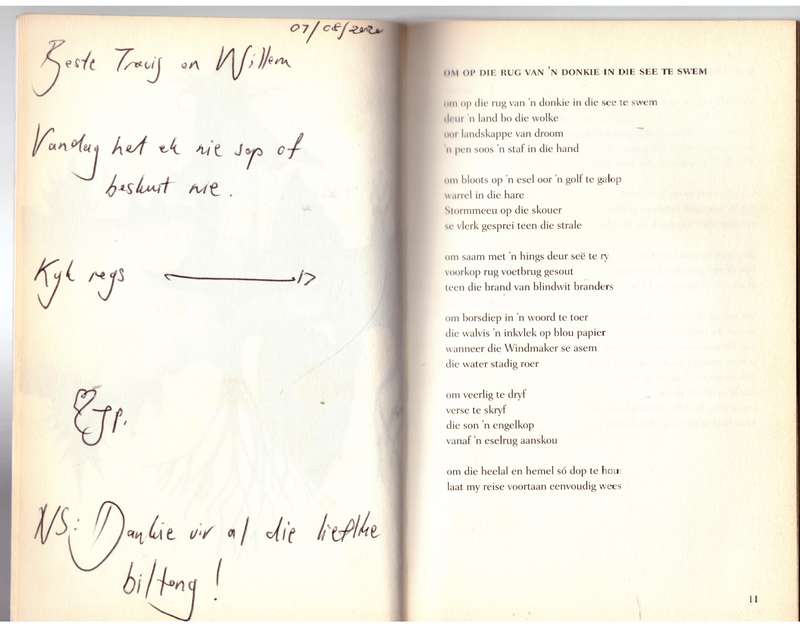 07/08/2020
Beste Travis en Willem
Vandag het ek nie sop of
beskuit nie.
Kyk regs
JP.
NS: Dankie vir al die lieflike
biltong!
OM OP DIE RUG VAN 'N DONKIE IN DIE SEE TE SWEM
om op die rug van 'n donkie in die see te swem
deur 'n land bo die wolke
oor landskappe van droom
'n pen soos 'n staf in die hand
om bloots op 'n esel oor 'n golf te galop
warrel in die hare
Stormmeeu op die skouer
se vlerk gesprei teen die strale
om saam met 'n hings deur seë te ry
voorkop rug voetbrug gesout
teen die brand van blindwit branders
om borsdiep in 'n woord te toer
die walvis 'n inkvlek op blou papier
wanneer die Windmaker se asem
die water stadig roer
om veerlig te dryf
verse te skryf
die son 'n engelkop
vanaf 'n eselrug aanskou
om die heelal en hemel só dop te hou:
laat my reise voortaan eenvoudig wees
11